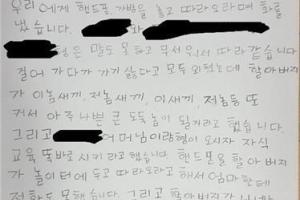 우리 에게 핸드폰 가방을 놓고 따라오라며 화를
냈습니다. 와
형은 말도 못하고 무서워서 따라갔습니다
걸어 가다가 가기 싫다고 모두 외쳤는데 할아버지
가 이놈새끼, 저놈새끼, 이새끼, 저놈들 또
커서 아주 나쁜 큰 도둑놈이 될거라고 했습니다.
그리고 어머님이랑형이 오시자 자식
교육 똑바로 시키라고했습니다. 핸드폰을 할아버지
가 놀이터에 두고 따라오라고 해서 엄마한테
전화도 못했습니다. 그리고 할아버지가